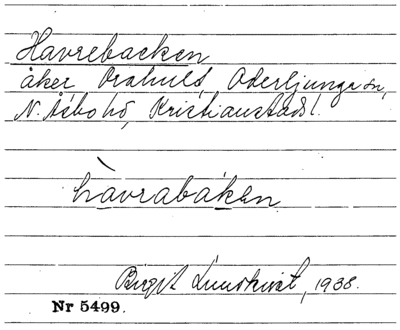 Havrebacken
åker Orahult, Oderljunga sn,
N. Åsbo hd, Kristianstads l.
hàvrabaken
Birgit Lundkvist, 1938.
Nr 5499.